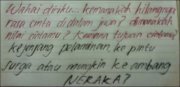 Wahai diriku.. kemanakah hilangnya
rasa cinta di dalam jiwa? dimanakah
nilai cintamu? Karena tujuan
kejenjang pelaminan, ke pintu
surga atau mungkin ke ambang
NERAKA?